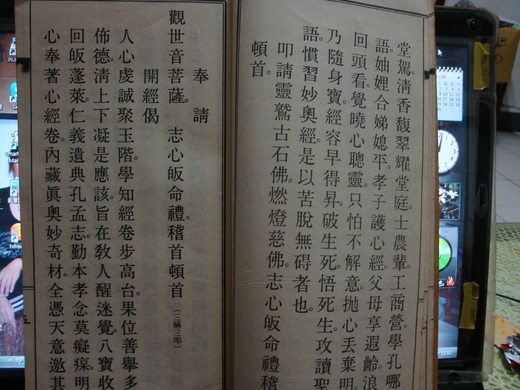 堂駕。清香馥翠耀堂庭。士農輩。工商營。學孔哪
語。妯娌合。娣媳平。孝子護心經。父母享遐齡。浪
回頭看。覺曉心聰靈。只怕不解意。拋心丟棄明
乃隨身寶。經容早得昇。破生死。悟死生。攻讀聖
語。慣習妙奧經。是以苦脫無碍者也。
叩請靈鷲古石佛。燃燈慈佛。志心皈命禮。稽首
頓首。
奉請
觀世音菩薩。志心皈命禮。稽首頓首(三稱三叩)
開經偈
人心虔誠聚玉階。學知經卷步高台。果位善擧多
佈德。淸上下凝是應該。旨在敎人醒迷覺。八寶收
回皈蓬萊。仁義遺典孔孟志。勤本孝念莫癡猜。明
心奉著心經卷。內藏眞奧妙奇材。全憑天意邀其